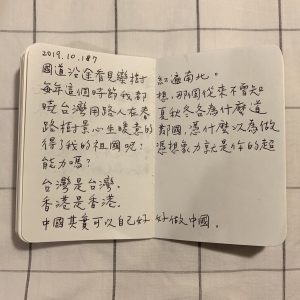 2019.10.18
國道沿途看見欒樹 紅遍南北。
每年這個時節我都 想，那個從來不曾知
曉台灣用路人在春 夏秋冬各為什麼道
路樹景心生暖意的 鄰國，憑什麼以為做
得了我的祖國呢？ 憑想像力就是你的超
能力嗎？
台灣是台灣。
香港是香港。
中國其實可以自己好 好做中國。